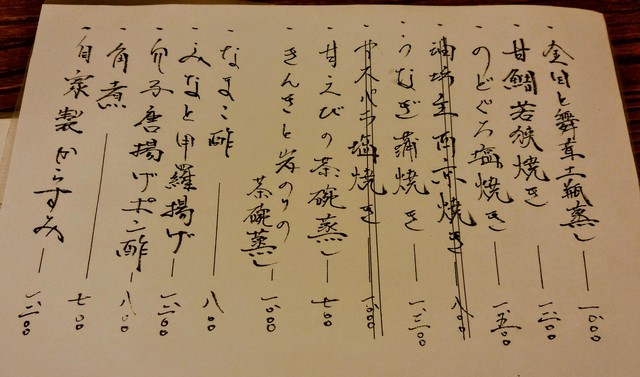 ・金目と舞茸土瓶蒸し — 一、〇〇〇
・甘鯛若狭焼き — 一、二〇〇
・のどぐろ塩焼き — 一、五〇〇
・油坊主西京焼き — 八〇〇
・うなぎ蒲焼き — 一、三〇〇
・バラ塩焼き — 一、〇〇〇
・甘えびの茶碗蒸し — 七〇〇
・きんきと岩のりの
茶碗蒸し — 一、〇〇〇
・なまこ酢 — 八〇〇
・みなと甲羅揚げ — 一、二〇〇
・唐揚げポン酢 — 八〇〇
・角煮 — 七〇〇
・自家製からすみ — 一、二〇〇